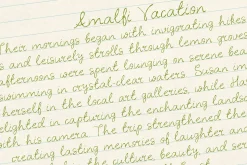 Amalfi Vacation
Their mornings began with invigorating hikes
s and leisurely strolls through lemon groves
afternoons were spent lounging on serene bea
swimming in crystal-clear waters. Susan im
herself in the local art galleries, while Ha
elighted in capturing the enchanting lands
ith his camera. The trip strengthened the
creating lasting memories of laughter and
the culture, beauty, and so